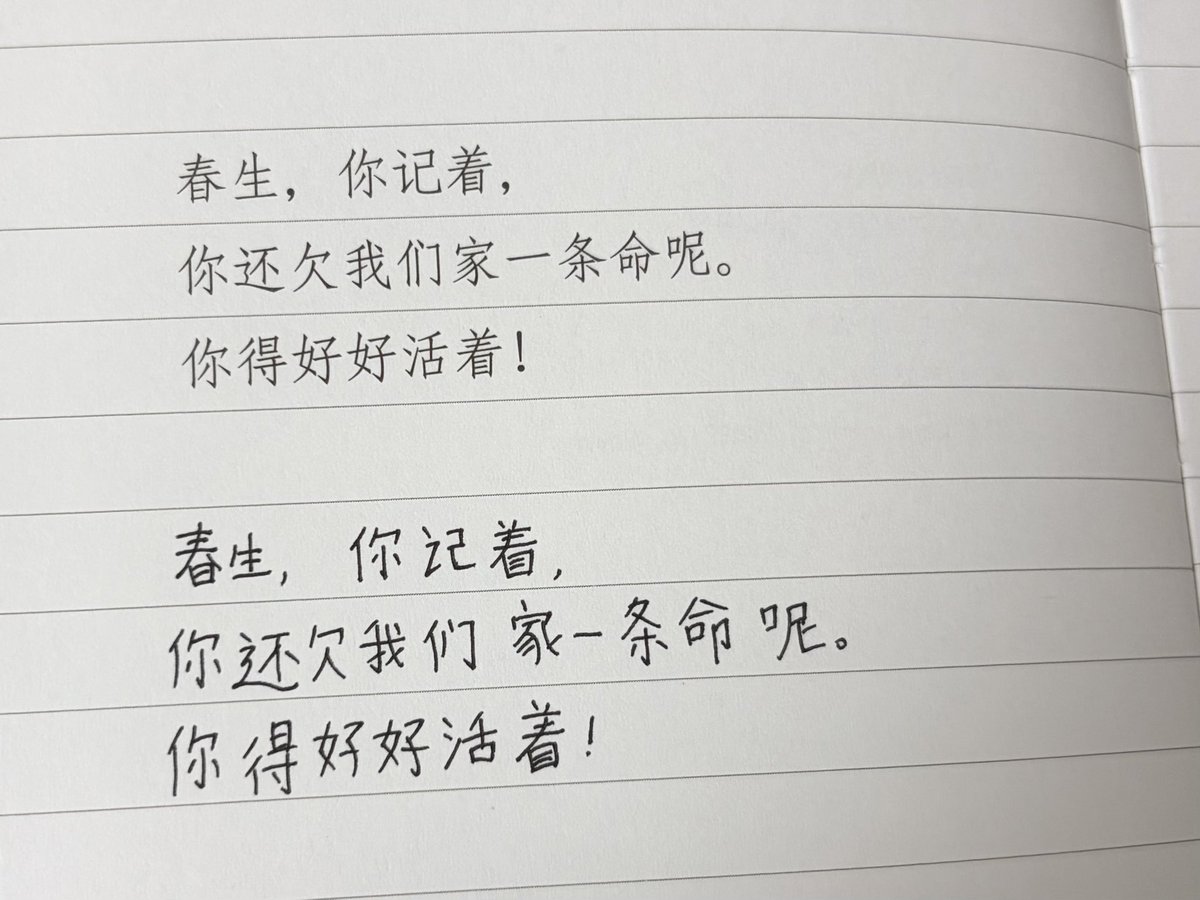 春生，你记着，
你还欠我们家一条命呢。
你得好好活着！
春生，你记着，
你还欠我们家一条命呢。
你得好好活着！